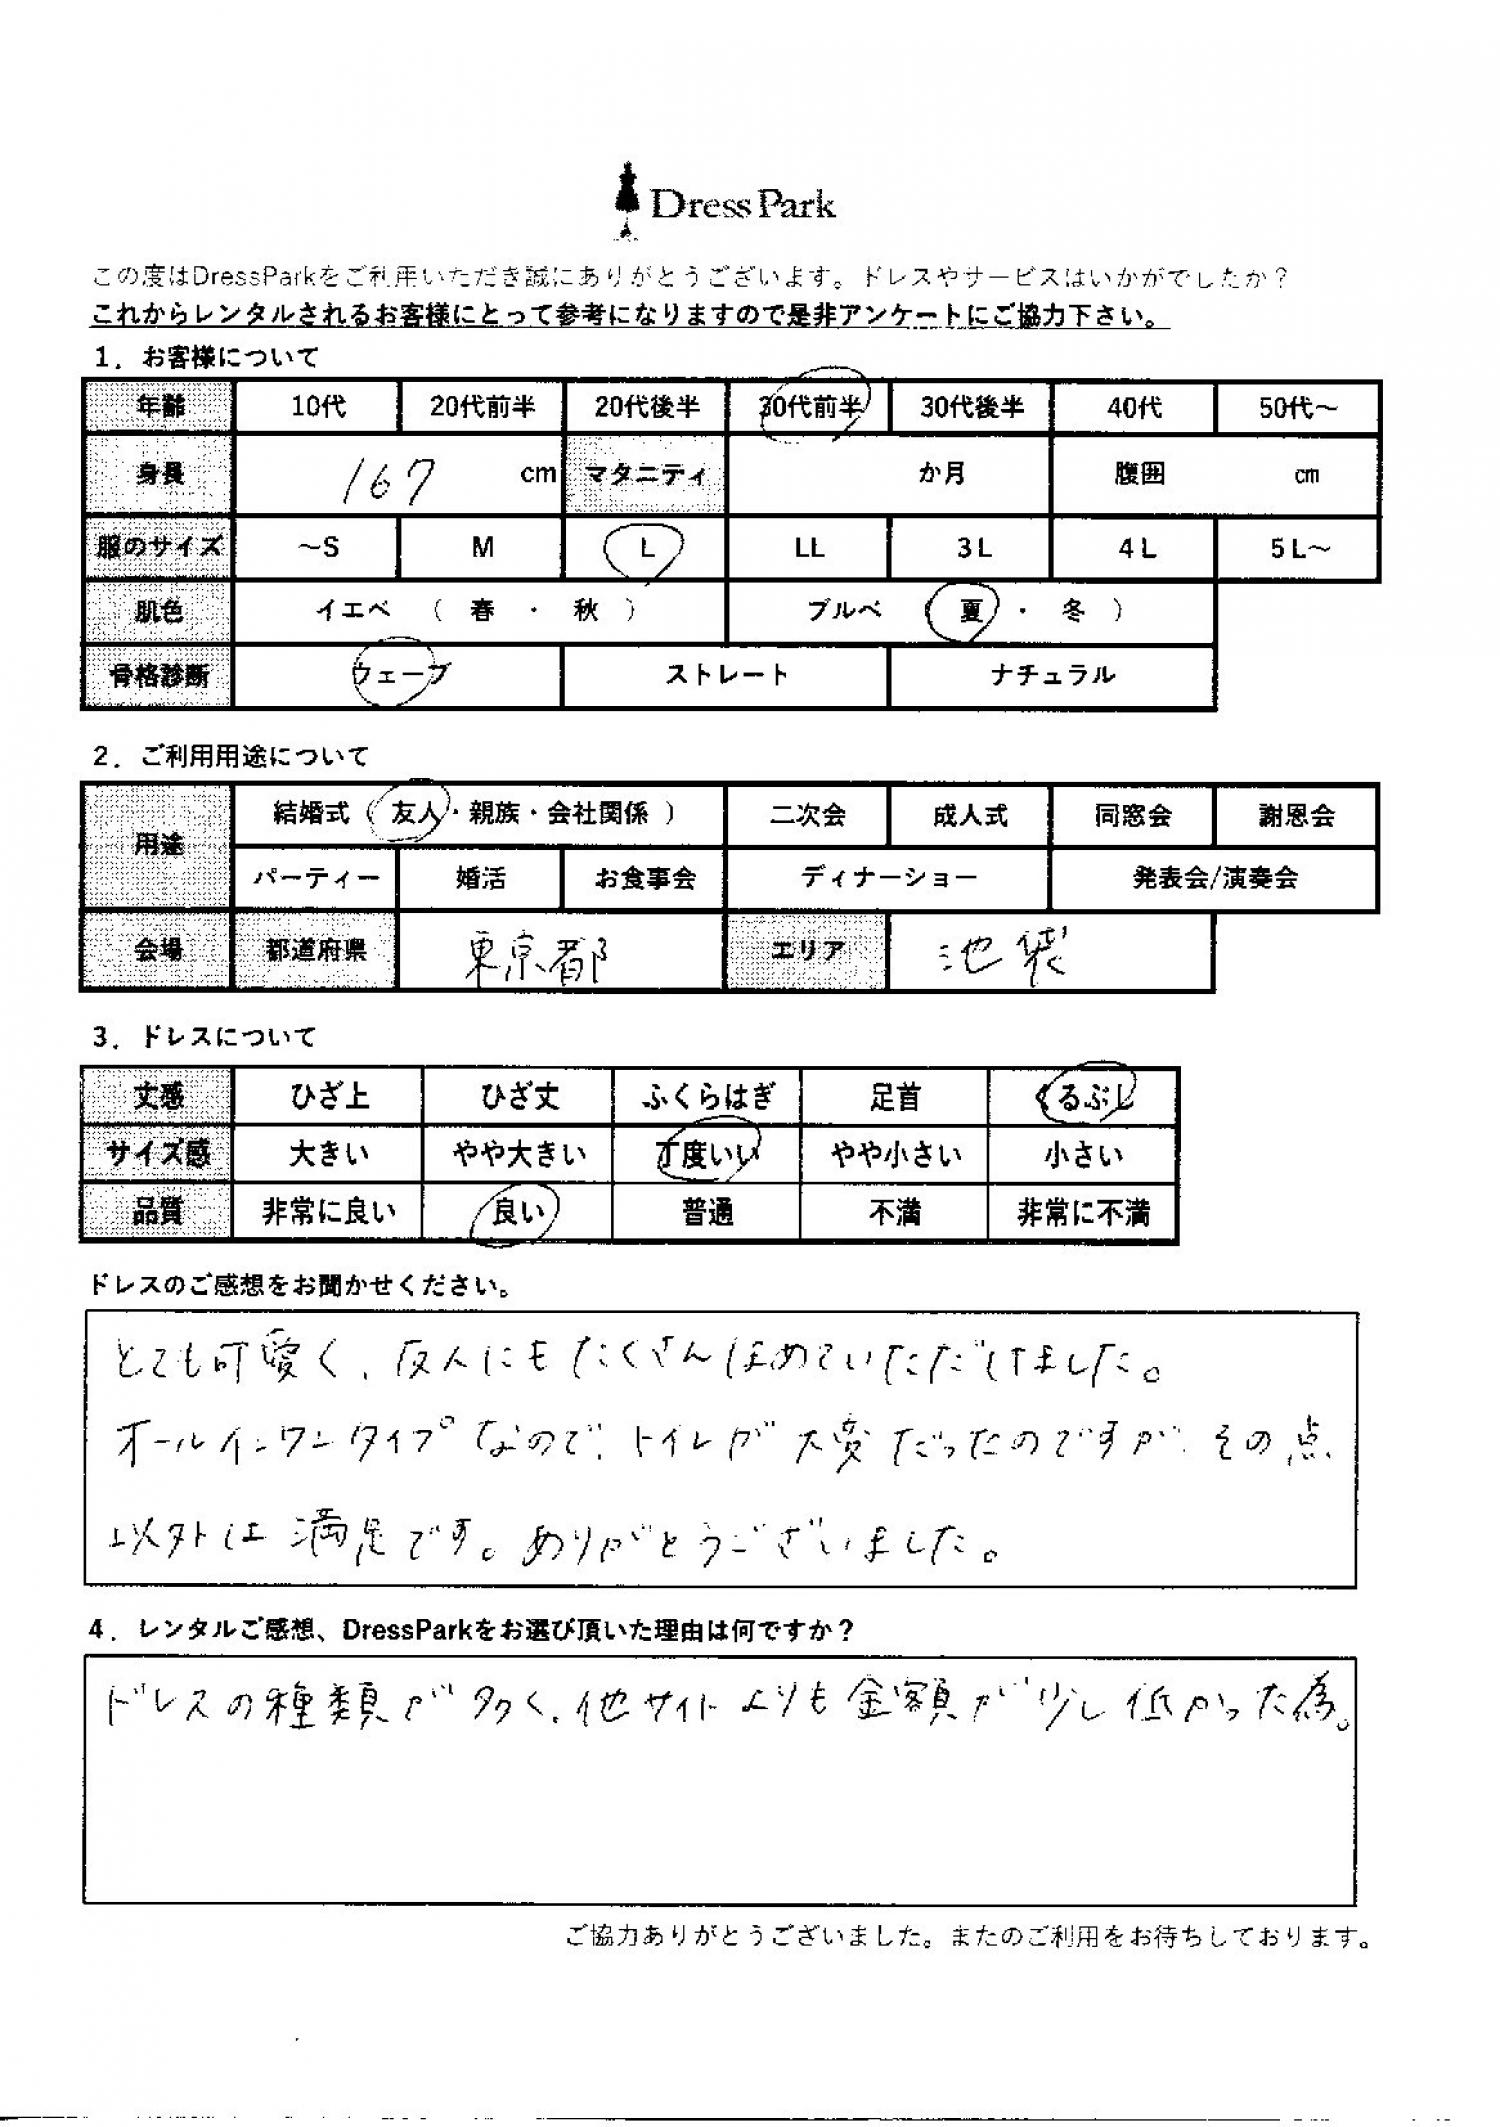 DressPark
この度はDressParkをご利用いただき誠にありがとうございます。ドレスやサービスはいかがでしたか？
これからレンタルされるお客様にとって参考になりますので是非アンケートにご協力下さい。
1．お客様について
年齢 10代 20代前半 20代後半 30代前半 30代後半 40代 50代～
身長 167 cm マタニティ か月 腹囲 cm
服のサイズ ～S M L LL 3L 4L 5L～
肌色 イエベ（ 春 ・ 秋 ） ブルベ（ 夏 ・ 冬 ）
骨格診断 ウェーブ ストレート ナチュラル
2．ご利用用途について
用途 結婚式（ 友人・親族・会社関係 ） 二次会 成人式 同窓会 謝恩会
パーティー 婚活 お食事会 ディナーショー 発表会/演奏会
会場 都道府県 東京都 エリア 池袋
3．ドレスについて
丈感 ひざ上 ひざ丈 ふくらはぎ 足首 くるぶし
サイズ感 大きい やや大きい 丁度いい やや小さい 小さい
品質 非常に良い 良い 普通 不満 非常に不満
ドレスのご感想をお聞かせください。
とても可愛く、友人にもたくさんほめていただけました。
オールインワンタイプなので、トイレが大変だったのですが、その点
以外は満足です。ありがとうございました。
4．レンタルご感想、DressParkをお選び頂いた理由は何ですか？
ドレスの種類が多く、他サイトよりも金額が少し低かった為。
ご協力ありがとうございました。またのご利用をお待ちしております。